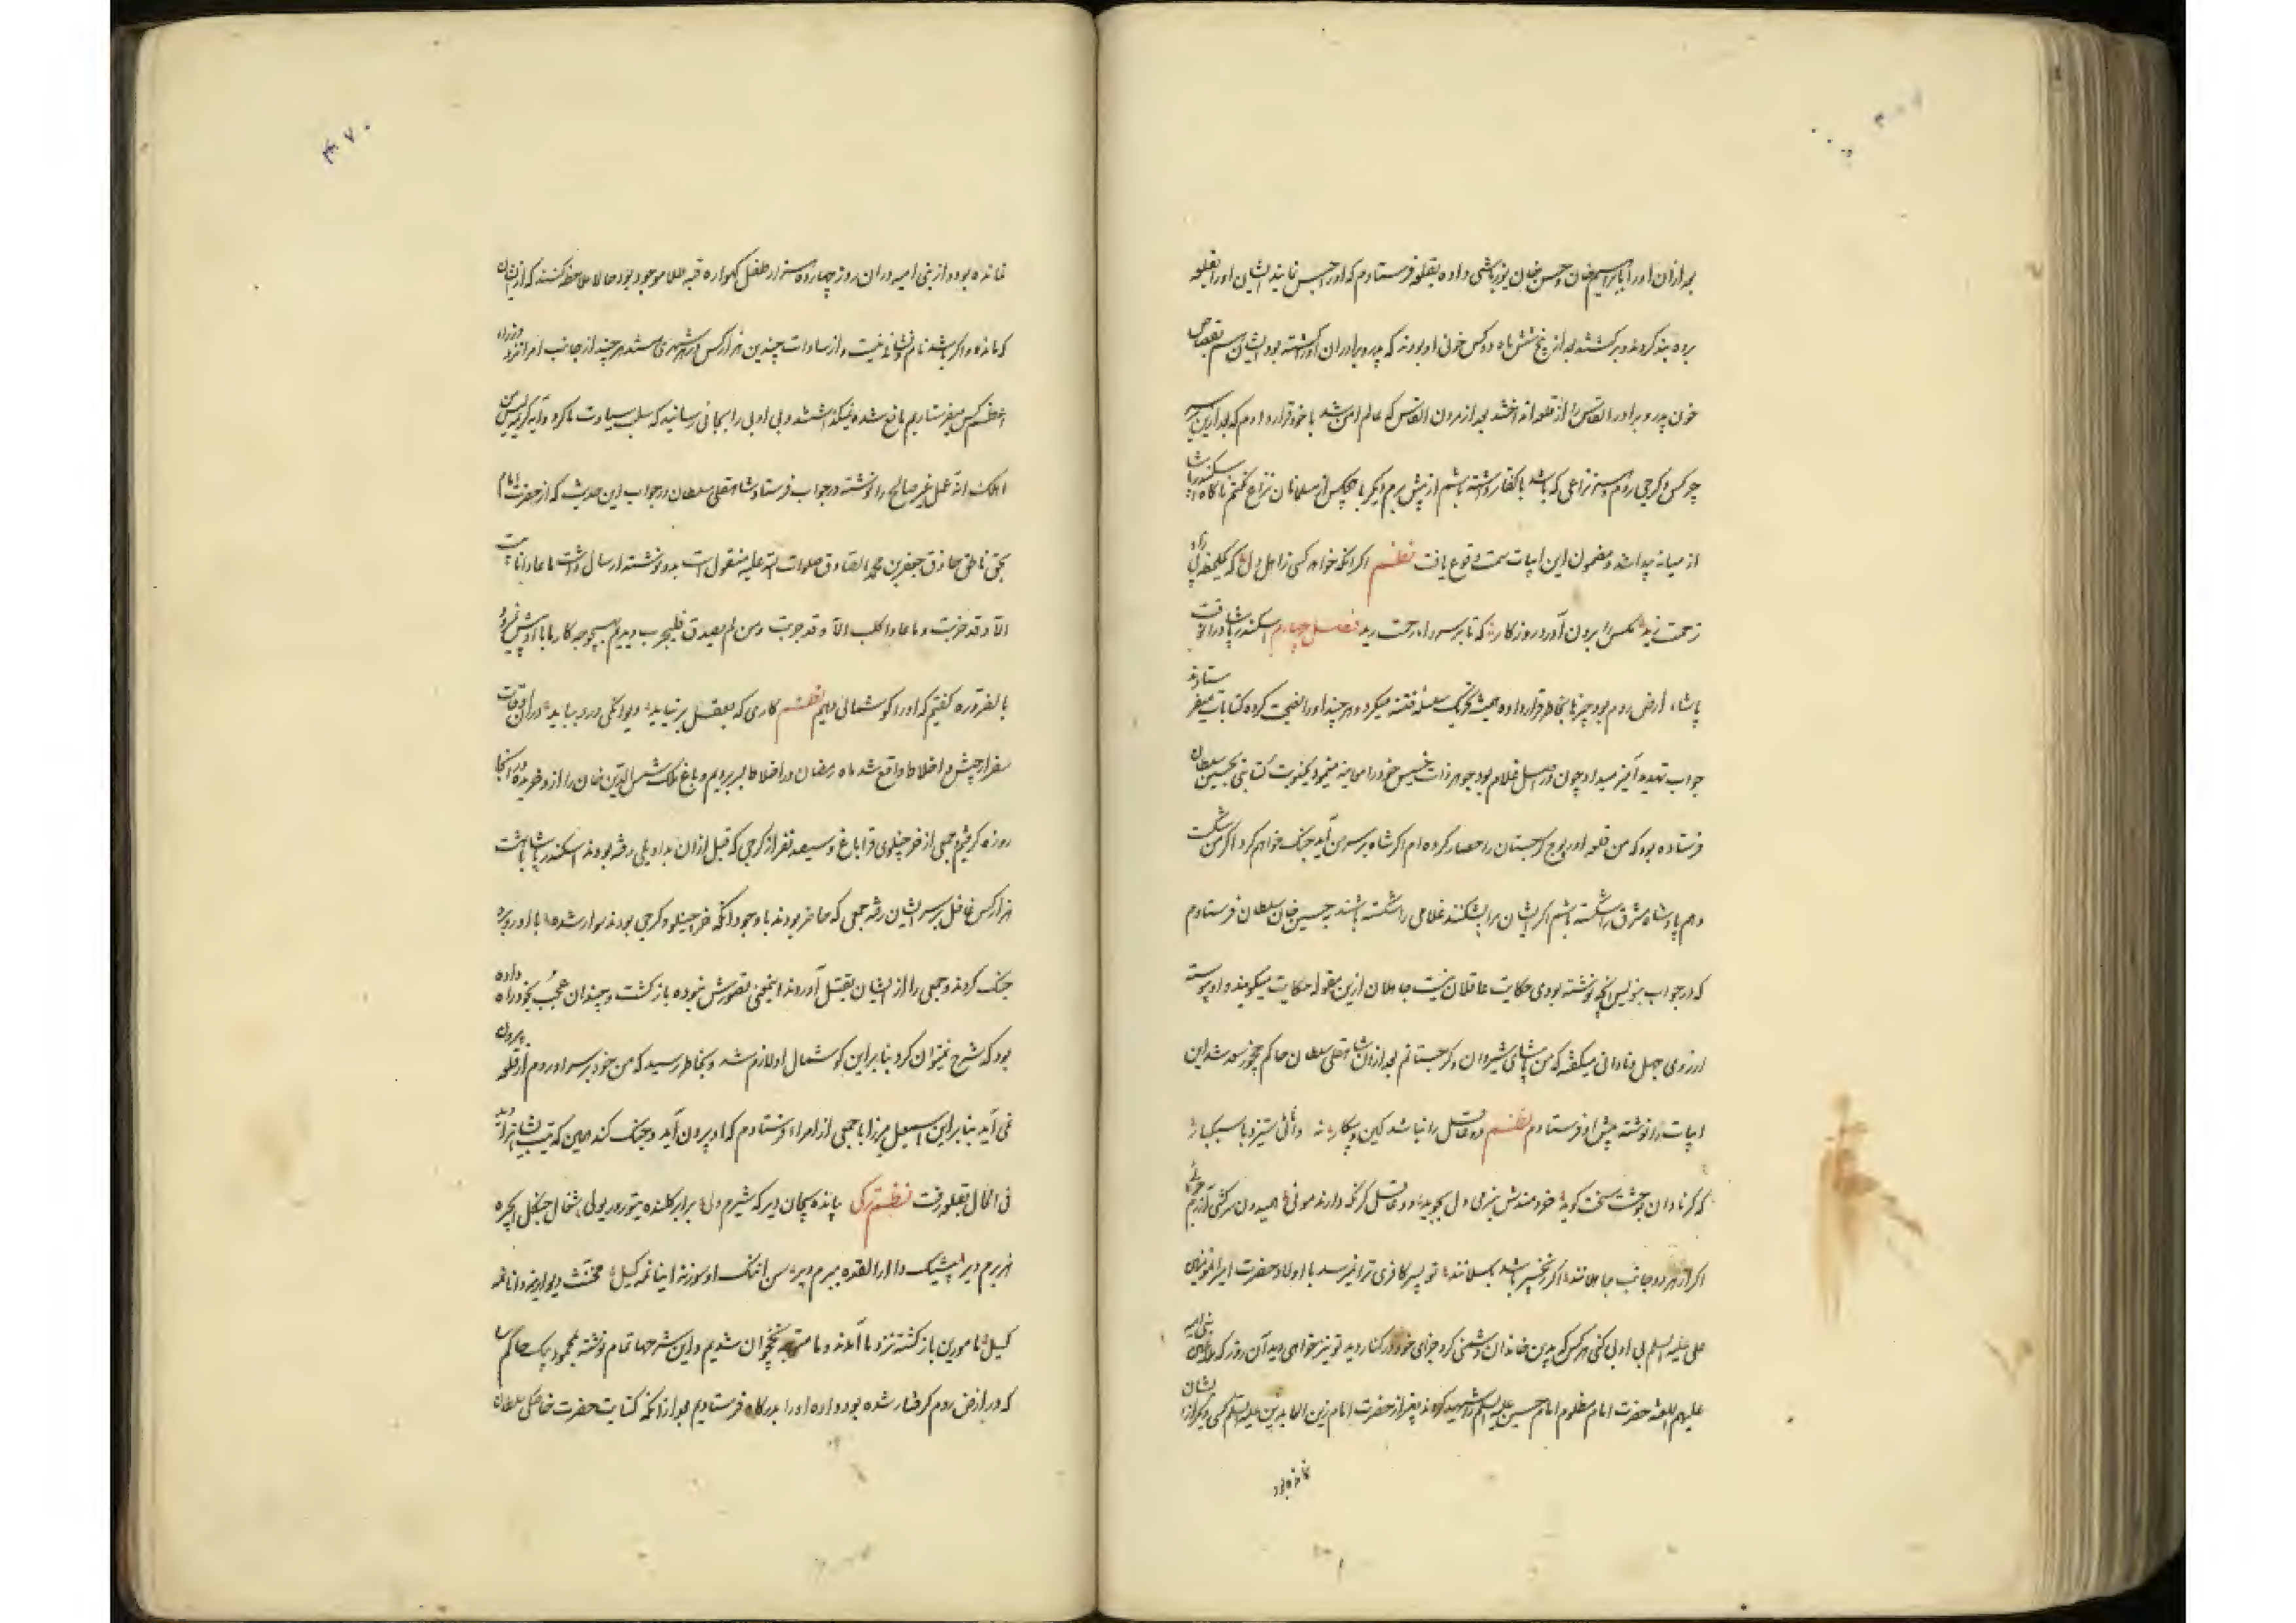 بعد ازان او را با ابراهیم خان و حسن خان یوزباشی داده بقلعه فرستادم که او را حبس نمایند ایشان او را بقلعه
برده بند کردند و برگشتند بعد از پنج شش ماه دو کس خونی او بودند که پدر و برادران او را کشته بود ایشان بقصاص
خون پدر و برادر القاس را از قلعه انداختند بعد از مردن القاس که عالم امن شد با خود قرار دادم که بعد ازین بر سر
چرکس و گرجی روم و ستیز نزاعی که باشد با کفار داشته باشم از پیش برم دیگر با هیچکس از مسلمانان نزاع نکنم ناگاه اسکندر پاشا
از میانه پیدا شد و مضمون این ابیات سمت وقوع یافت نظم اگر آنکه خواهد کسی ز اهل داغ که یکلحظه
زحمت زید مکس را برون آورد روزگار که تا بر سر راحت رید فصل چهارم اسکندر پاشا در انوقت
پاشاء ارض روم بود چیزها بخاطر قرار داده همیشه تحریک سلسله فتنه میکرد و هر چند او را نصیحت کرده کتابات میفرستادند
جواب تهدید آمیز میداد چون در اصل غلام بود جوهر ذات خسیس خود را معاینه مینمود یکنوبت کتابتی بحسین خان سلطان
فرستاده بود که من قلعه اور بوج گرجستان را حصار کرده ام اگر شاه بر سر من آید جنگ خواهم کرد اگر من شکست
دهم پادشاه مشرق را شکسته باشم اگر ایشان مرا بشکنند غلامی را شکسته باشند بحسین خان سلطان فرستادم
که در جواب بنویس آنچه نوشته بودی حکایت عاقلان نیست جاهلان ازین مقوله حکایت میگویند و او پیوسته
از روی جهل و نادانی میگفته که من پاشای شیروان و گرجستانم بعد ازان شاهقلی سلطان حاکم چخور سعد شد این
ابیات را نوشته پیش او فرستادم نظم دو عاقل را نباشد کین و پیکار نه دانائی ستیزد با سبکسار
که گر نادان بوحشت سخت گوید خردمندش بنرمی دل بجوید دو عاقل گر نگه دارند موئی همیدون سرکشی و آزرم جوئی
اگر از هر دو جانب جاهلانند اگر زنجیر باشد بگسلانند تو پسر کافری ترا نمیرسد با اولاد حضرت امیر المؤمنین
علی علیه السلم بی ادبی کنی هر کس که بدین خاندان دشمنی کرد جزای خود در کنار دید تو نیز خواهی دید آن روز که بنی امیه
علیهم اللعنه حضرت امام مظلوم امام حسین علیه السلم را شهید کردند بغیر از حضرت امام زین العابدین علیه السلم کسی دیگر از ایشان
نمانده بود
۳۷۰
نمانده بود و از بنی امیه دران روز چهارده هزار طفل گهواره قبه طلا موجود بود حالا ملاحظه کنند که از ایشان
که مانده و اگر باشد نام و نشانه نیست و از سادات چندین هزار کس در هر شهری هستند هر چند از جانب امرا نزد
کس میفرستادیم مانع شده نمیگذاشتند و بی ادبی را بجائی رسانید که سلب سیادت ما کرد و آیه کریمه لیس من
اهلک انه عمل غیر صالح را نوشته در جواب فرستاد شاهقلی سلطان در جواب این حدیث که از حضرت امام
بحق ناطق جعفر بن محمد الصادق صلوات الله علیه منقول است بدو نوشته ارسال داشت ما عادانا بیت
الا و قد خربت و ما عادا کلب الا و قد جربت و من لم یصدق فلیجرب دیدیم بهیچوجه کار ما با او پیش نمیرود
بالضروره گفتیم که او را گوشمالی دهیم نظم کاری که بعقل بر نیاید دیوانگی درو بباید دران اوقات
سفر ارجیش و اخلاط واقع شد ماه رمضان در اخلاط بسر بردیم و باغ ملک شمس الدین خان را ازو خریده در آنجا
روزه گرفتیم جمعی از قراجیلوی قراباغ و سیصد نفر از گرجی که قبل ازان بداویلی رفته بودند اسکندر پاشا با هشت
هزار کس غافل بر سر ایشان رفته جمعی که حاضر بودند با وجود آنکه قراجیلو و گرجی بودند سوار شده با او روبرو
جنگ کردند و جمعی را از ایشان بقتل آوردند اینمعنی تصورش نبوده باز گشت و چندان عجب بخود راه داده
بود که شرح نمیتوان کرد بنا براین گوشمال او لازم شد و بخاطر رسید که من خود بر سر او روم از قلعه بیرون
نمی آید بنا براین اسمعیل میرزا با جمعی از امراء فرستادم که او بیرون آید و جنگ کند همین که تیپ سپاه را دید
فی الحال بقلعه رفت نظم ترکی
کیل مامورین باز گشته نزد ما آمدند و ما متوجه نخجوان شدیم و این شرحها تمام نوشته بمحمود بیک حاکم
که در ارض روم گرفتار شده بود داده او را بدرگاه فرستادیم بعد از آنکه کتابت حضرت خاصکی سلطان